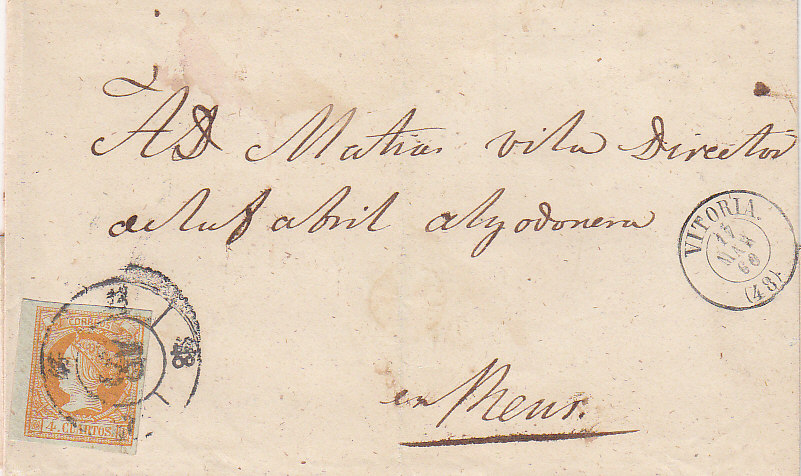 A D Matias vila Director
de la fabril algodonera
en Reus.
VITORIA.
17
MAR
60
(48)
CORREOS
4 CUARTOS
48